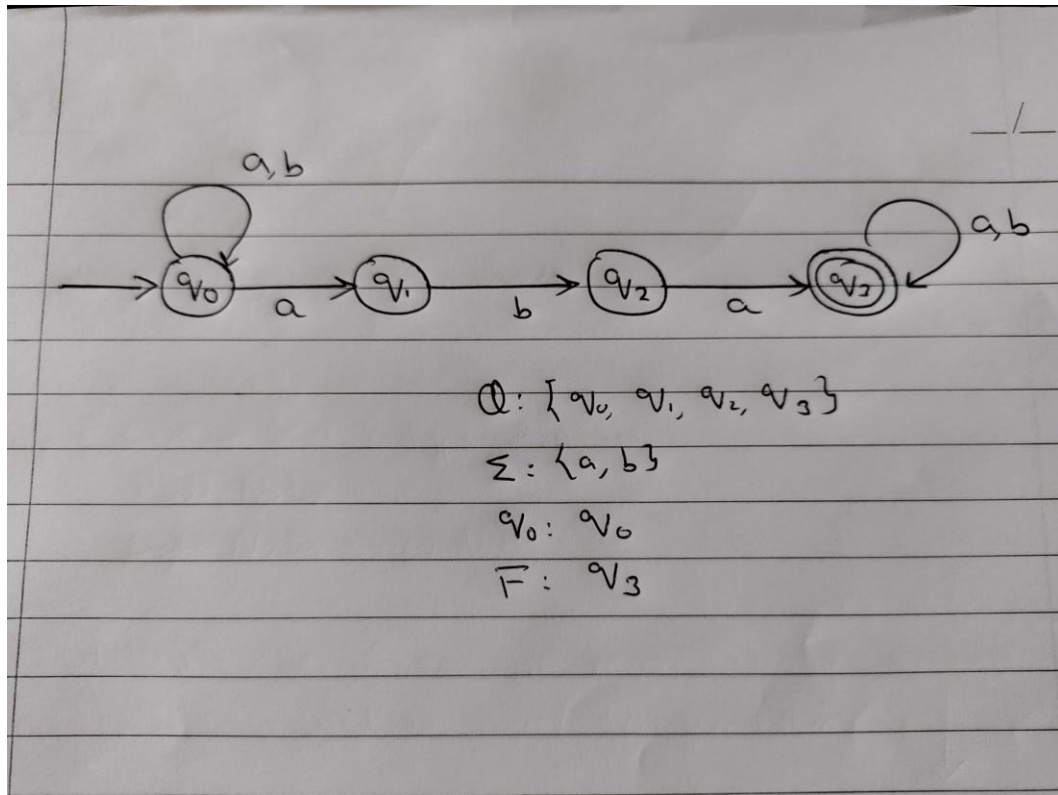 __/__
a,b
a,b
q₀ a q₁ b q₂ a q₃
Q: {q₀, q₁, q₂, q₃}
Σ: {a, b}
q₀: q₀
F: q₃